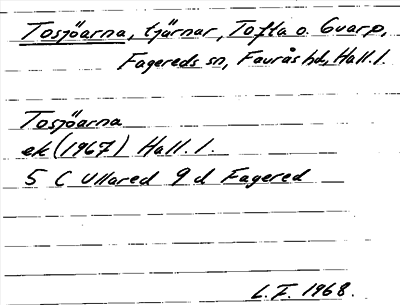 Tosjöarna, tjärnar, Tofta o. Gvarp,
Fagereds sn, Faurås hd, Hall. l.
Tosjöarna
ek (1967) Hall. l.
5 C Ullared 9 d Fagered
L. F. 1968.